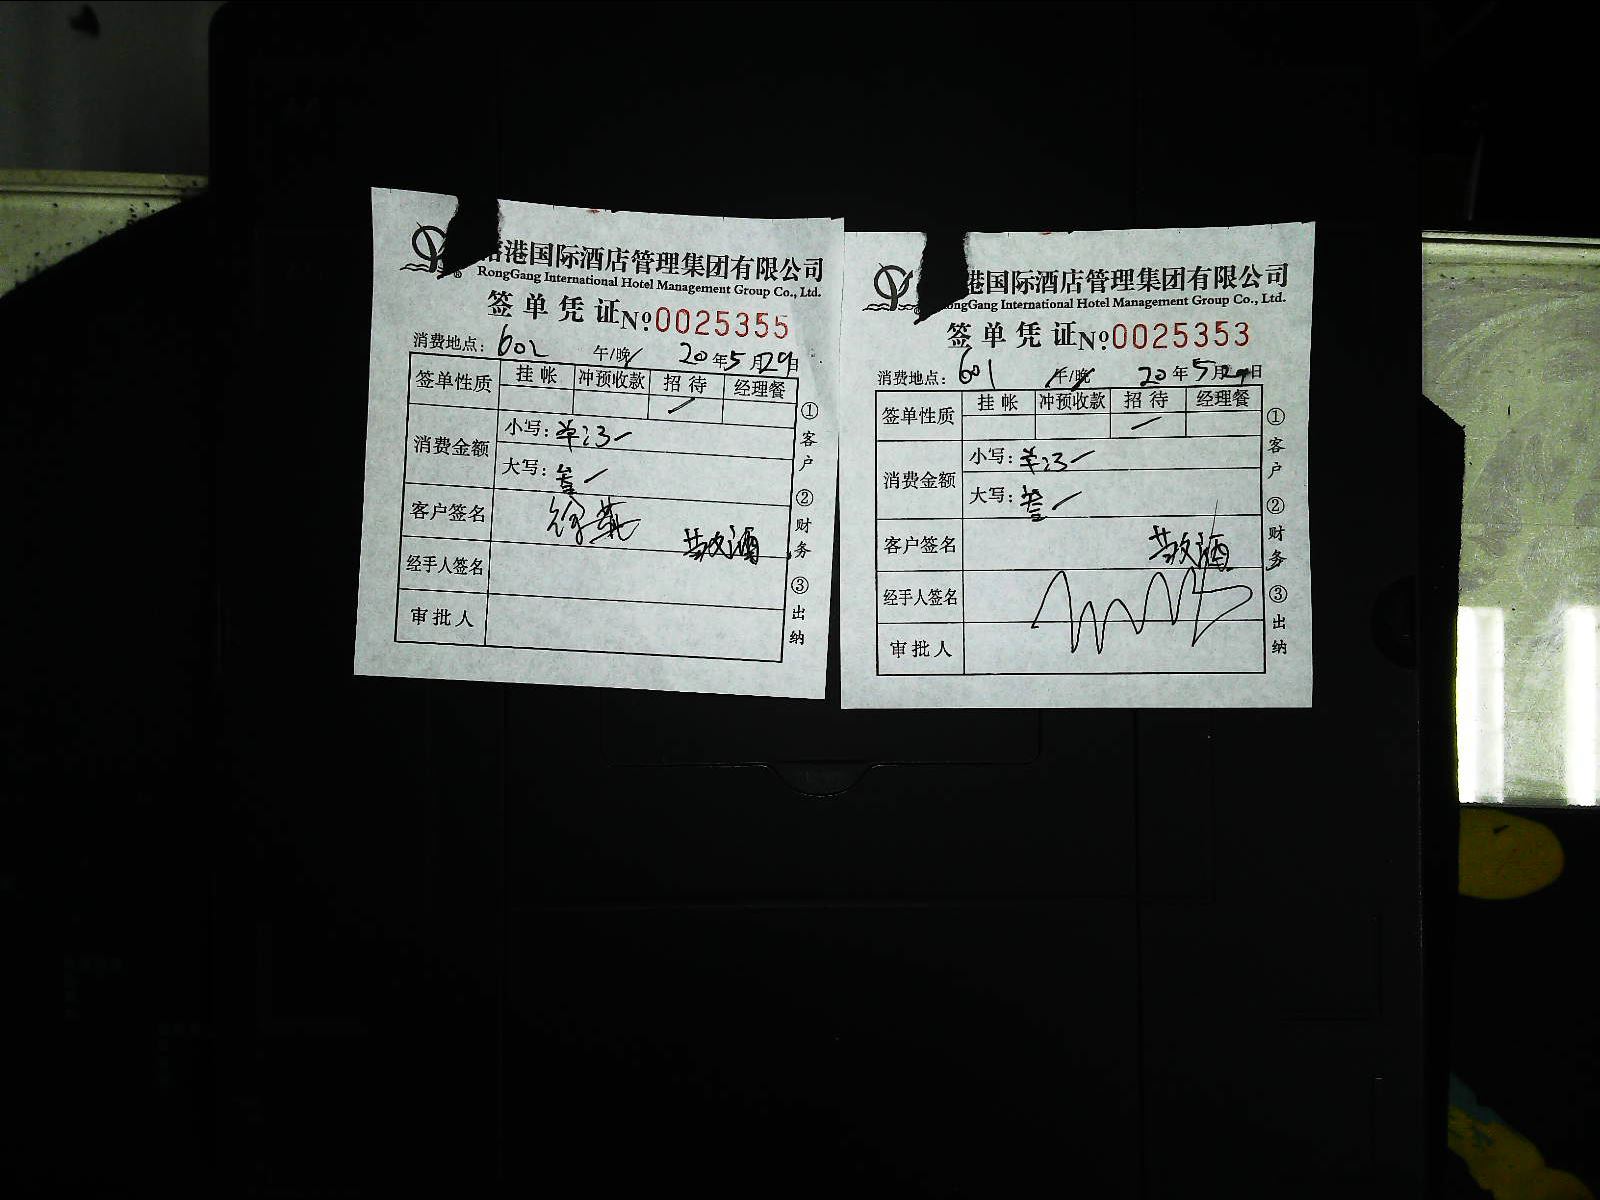 港国际酒店管理集团有限公司
RongGang International Hotel Management Group Co., Ltd.
签单凭证 №0025355
消费地点: 602 午/晚 20年5月29日
签单性质 挂帐 冲预收款 招待 经理餐
消费金额 小写:
大写:
客户签名
敬酒
经手人签名
审批人
①客户 ②财务 ③出纳
港国际酒店管理集团有限公司
ongGang International Hotel Management Group Co., Ltd.
签单凭证 №0025353
消费地点: 601 午/晚 20年5月29日
签单性质 挂帐 冲预收款 招待 经理餐
消费金额 小写:
大写:
客户签名 敬酒
经手人签名
审批人
①客户 ②财务 ③出纳